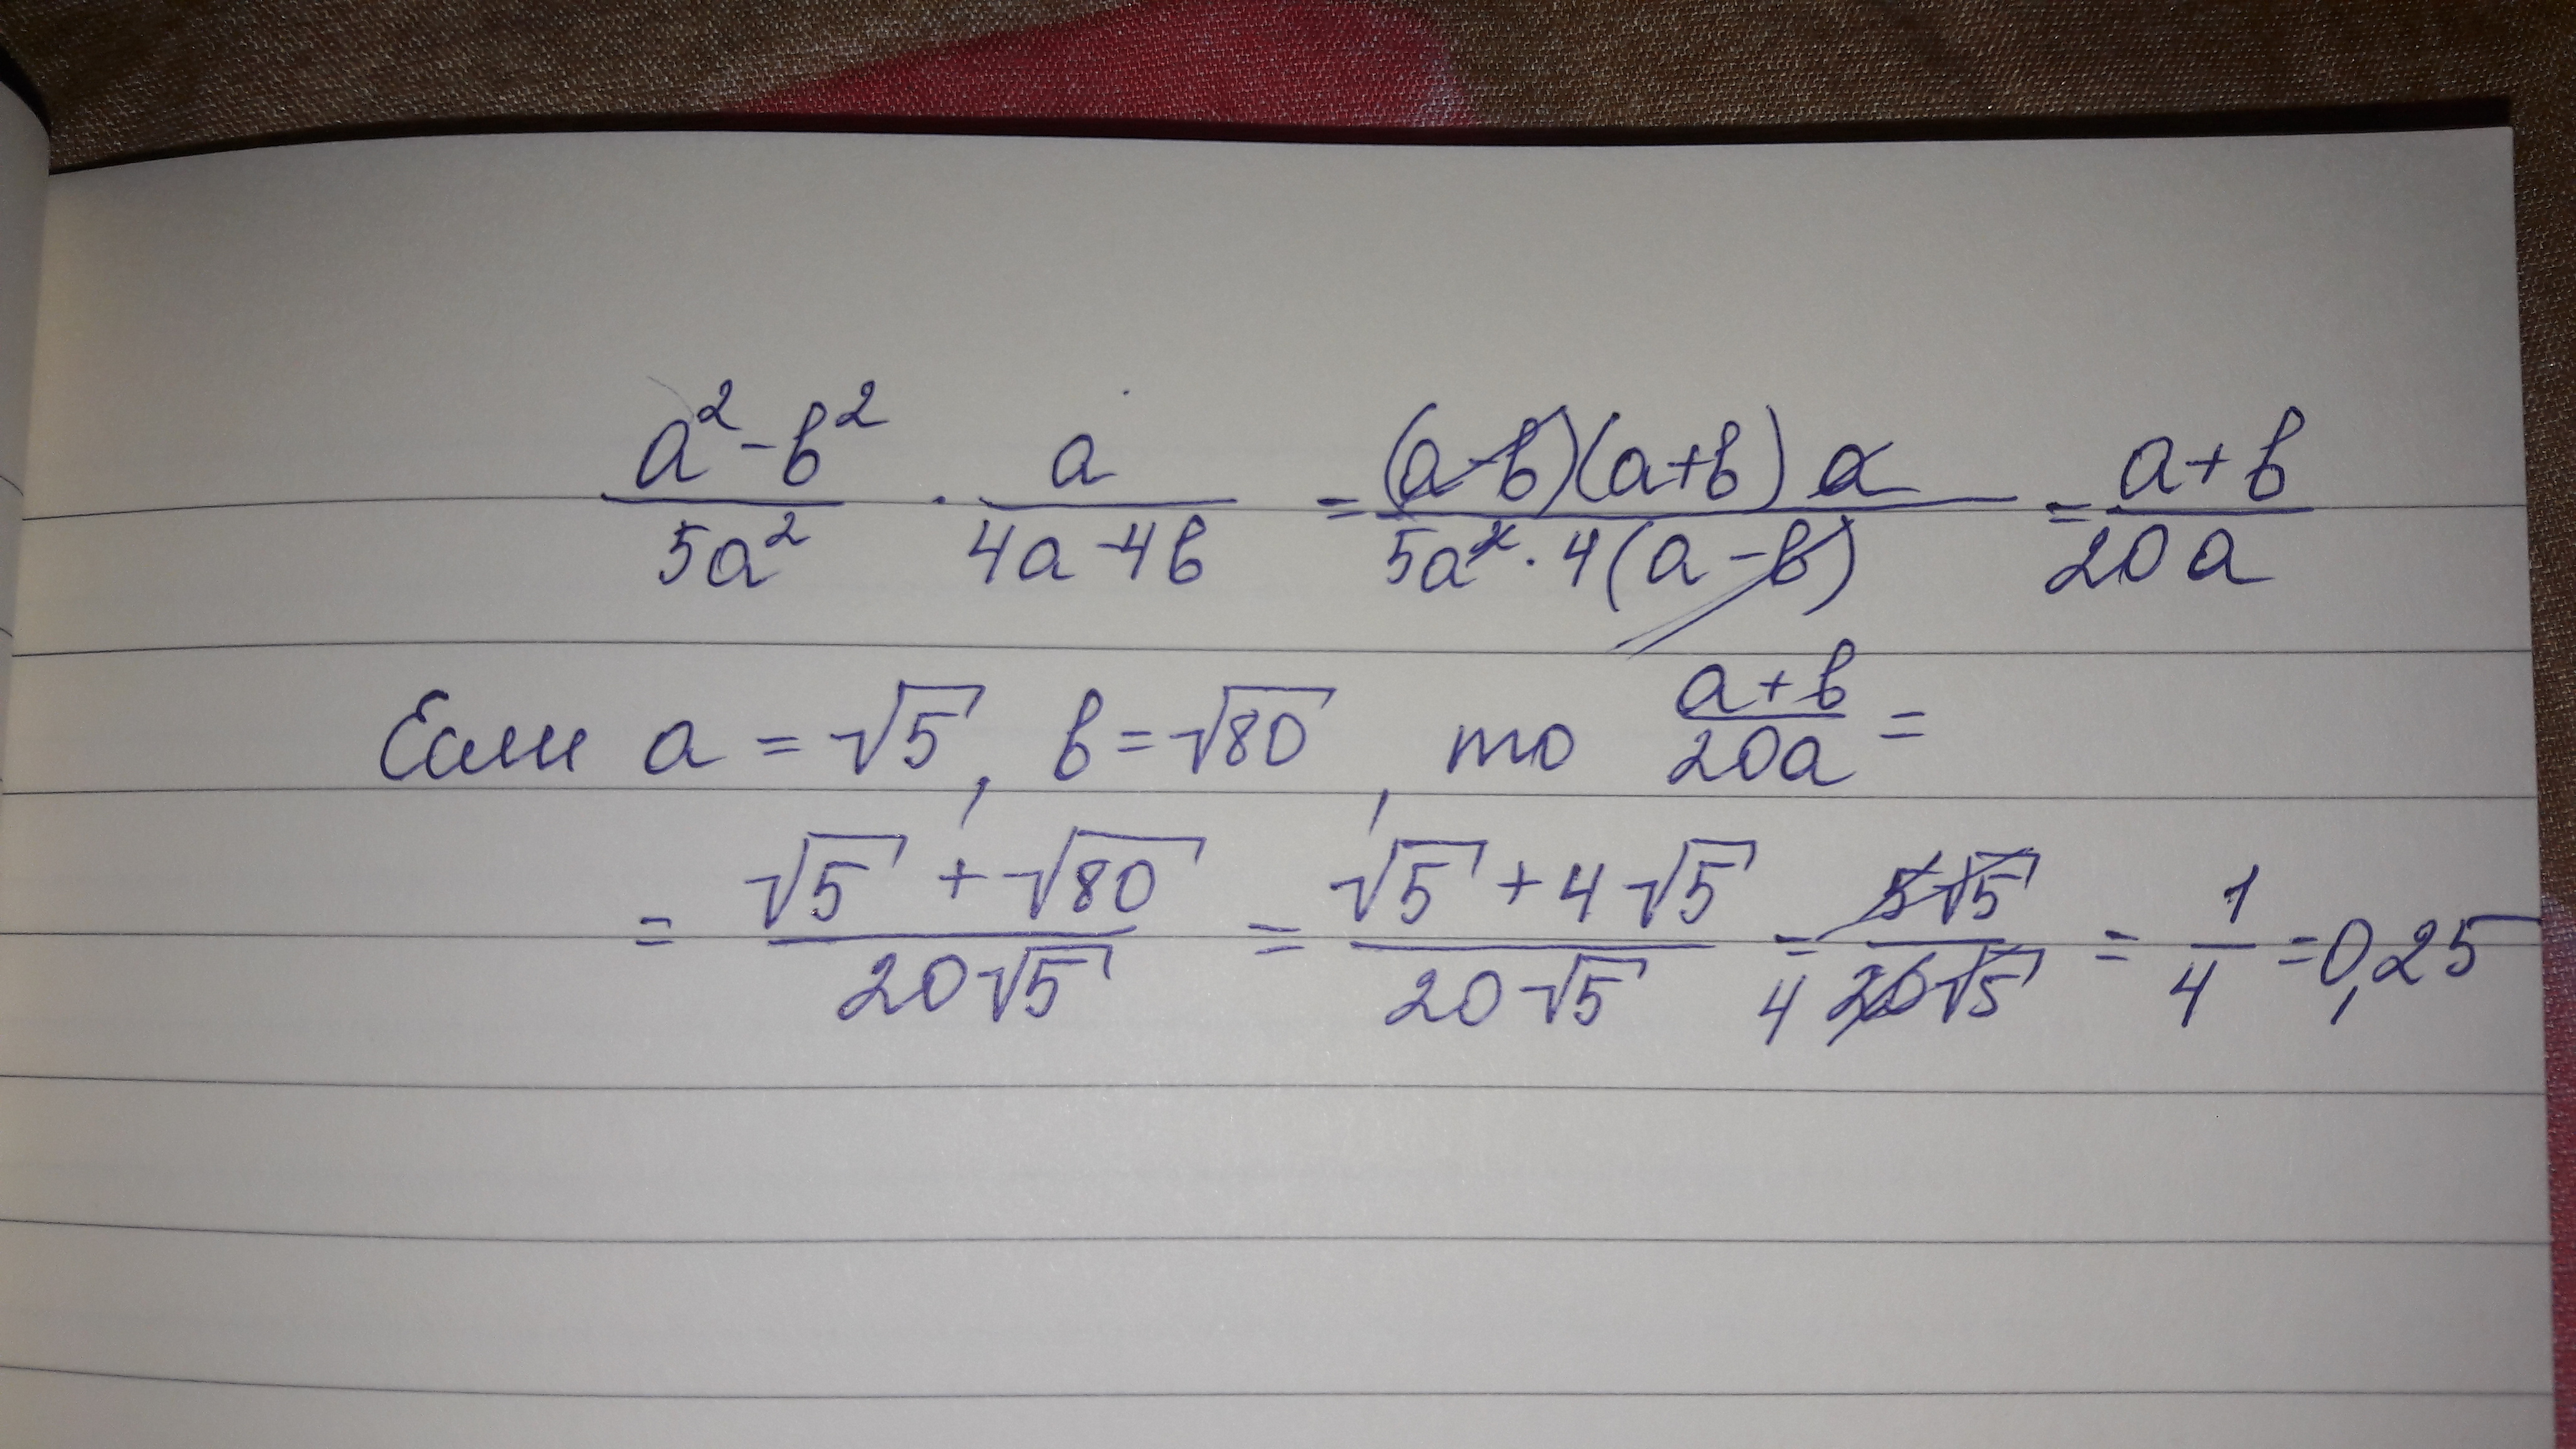 (a²-b²)/(5a²) · a/(4a-4b) = ((a-b)(a+b)a)/(5a²·4(a-b)) = (a+b)/(20a)
Если a = √5, b = √80, то (a+b)/(20a) =
= (√5 + √80)/(20√5) = (√5 + 4√5)/(20√5) = (5√5)/(20√5) 4 = 1/4 = 0,25